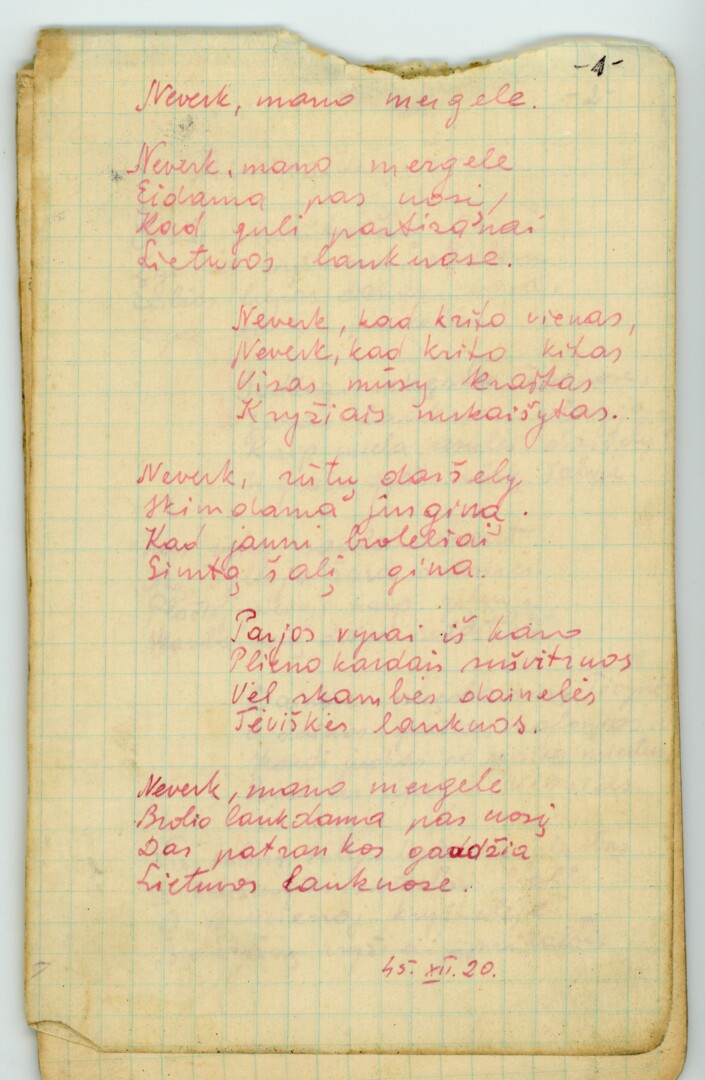 -1-
Neverk, mano mergele.
Neverk, mano mergele
Eidama pas uosį,
Kad guli partizanai
Lietuvos laukuose.
Neverk, kad krito vienas,
Neverk, kad krito kitas
Visas mūsų kraštas
Kryžiais nukaišytas.
Neverk, rūtų daržely
Skindama jurginą.
Kad jauni broleliai
Šimtą šalį gina.
Parjos vyrai iš karo
Plieno kardais sušvitruos
Vėl skambės dainelės
Tėviškės laukuos.
Neverk, mano mergele
Brolio laukdama pas uosį
Dar patrankos gaudžia
Lietuvos laukuose.
45. XII. 20.